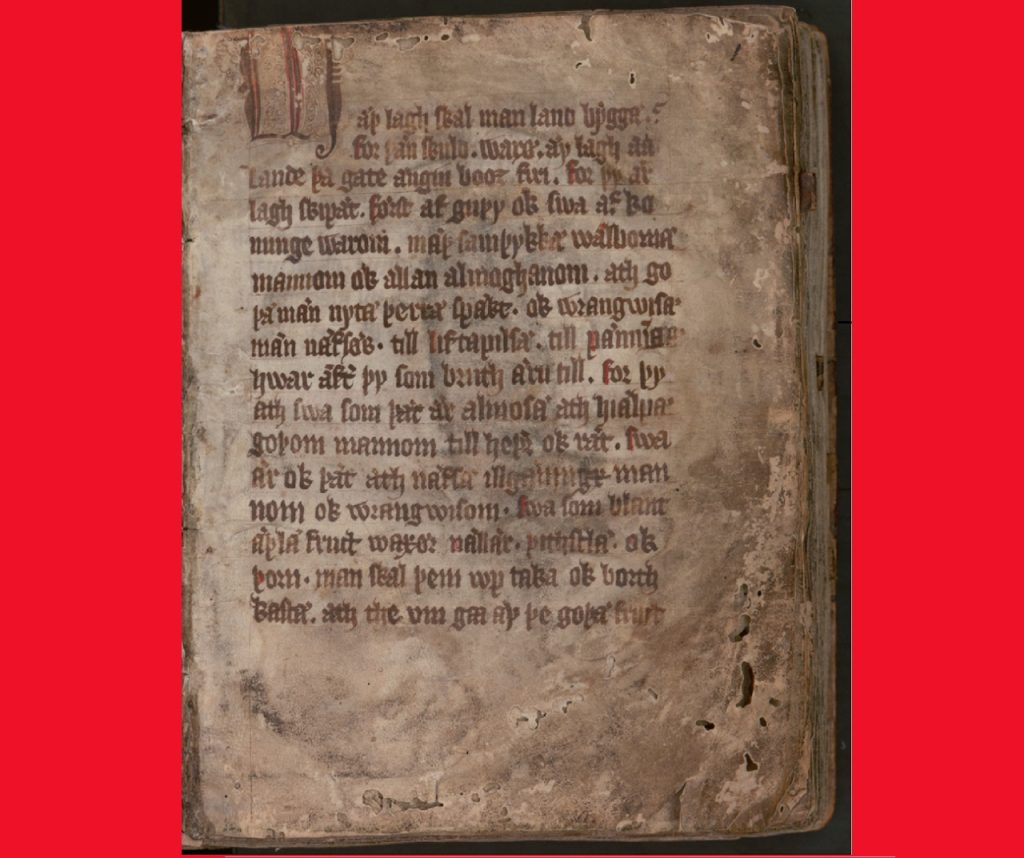 Maþ lagh skal man land bygga.
for þan skuld. waræ. æy lagh a
lande þa gate angin boot firi. for þy ær
lagh skipat. først af guþy ok swa af ko
nunge warom. mæþ samþykkæ wælborna
mannom ok allan almoghanom. ath go
þa man nyta þerræ spakt. ok wrangwisa
man næfses. till liftapilsæ. till
hwar æft þy som bruth æru till. for þy
ath swa som þæt ær almosa ath hialpa
goþom mannom till heþr ok ræt. swa
ær ok þæt ath næfsa man
nom ok wrangwisom. swa som blant
æþla fruct waxer nællar. ok
þorn. man skal þem wp taka ok borth
kasta. ath the vm gaa æy þe goþa fruct